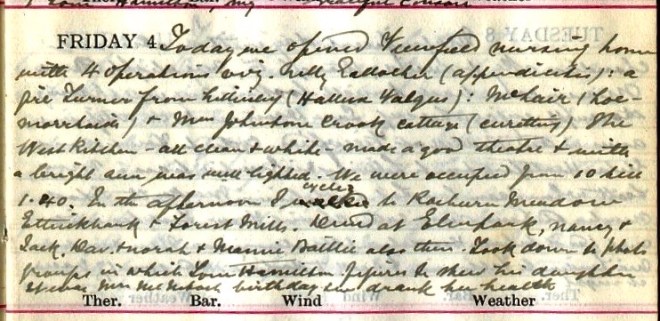 Ther. Bar.
FRIDAY 4 Today we opened nursing home
with 4 operations viz. Nelly Gallocher (appendicitis): a
girl Turner from (Hallux Valgus): McNair (hoe-
morrhoids) & Mrs Johnstone Crook Cottage (curetting) The
West Kitchen - all clean & white - made a good theatre & with
a bright sun was well lighted. We were occupied from 10 till
1.40. In the afternoon I cycled to Raeburn Meadow
Ettrickbank & Forest Mills. Dined at Elmpark, Nancy &
Jack, Dav. & Norah & Mamie Baillie also there. Took down the photo
groups in which Tom Hamilton figures to show his daughter
It was Mrs McIntosh birthday & we drank her health
Ther. Bar. Wind Weather